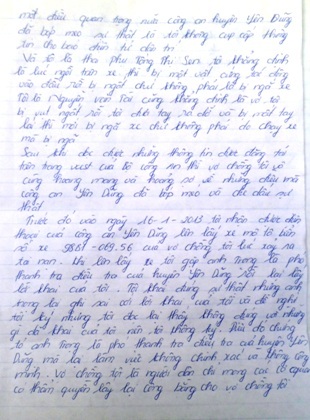 một điều quan trọng nữa công an huyện Yên Dũng
đã bóp méo sự thật là tôi không cung cấp thông
tin cho báo điện tử dân trí
Vợ tôi là Thà Phụ Tòng Thị Sen tôi khẳng định
là lúc ngồi trên xe thì bị một vật cứng rơi đúng
vào đầu rồi bị ngất chứ không phải là bị ngã xe
Tôi là Nguyễn Văn Tôi cũng khẳng định là vợ tôi
bị vụt ngất rồi tôi đưa tay ra đỡ và bị mất tay
lái thì mới bị ngã xe chứ không phải do chạy xe
mà bị ngã
Sau khi đọc được những thông tin được đăng tải
trên trang vwst của Bộ công an thì vợ chồng tôi vô
cùng hoang mang và hoảng sợ về những điều mà
công an Yên Dũng đã bóp méo và che dấu sự
thật
Trước đó vào ngày 16-1-2013 tôi nhận được điện
thoại của công an Yên Dũng lên lấy xe mô tô biển
số xe 98B1-019.56 của vợ chồng tôi lúc xảy ra
tai nạn. Khi lên lấy xe tôi gặp anh Trọng là phó
thanh tra điều tra của huyện Yên Dũng rồi lại lấy
lời khai của tôi. Tôi khai đúng sự thật nhưng anh
Trọng lại ghi sai với lời khai của tôi và đề nghị
tôi ký nhưng tôi đọc lại thấy không đúng với những
gì đã khai của tôi nên tôi không ký. Điều đó chứng
tỏ anh Trọng là phó thanh tra điều tra của huyện Yên
Dũng mà lại làm việc không chính xác và không công
minh. Vợ chồng tôi là người dân chỉ mong các cơ quan
có thẩm quyền lấy lại công bằng cho vợ chồng tôi